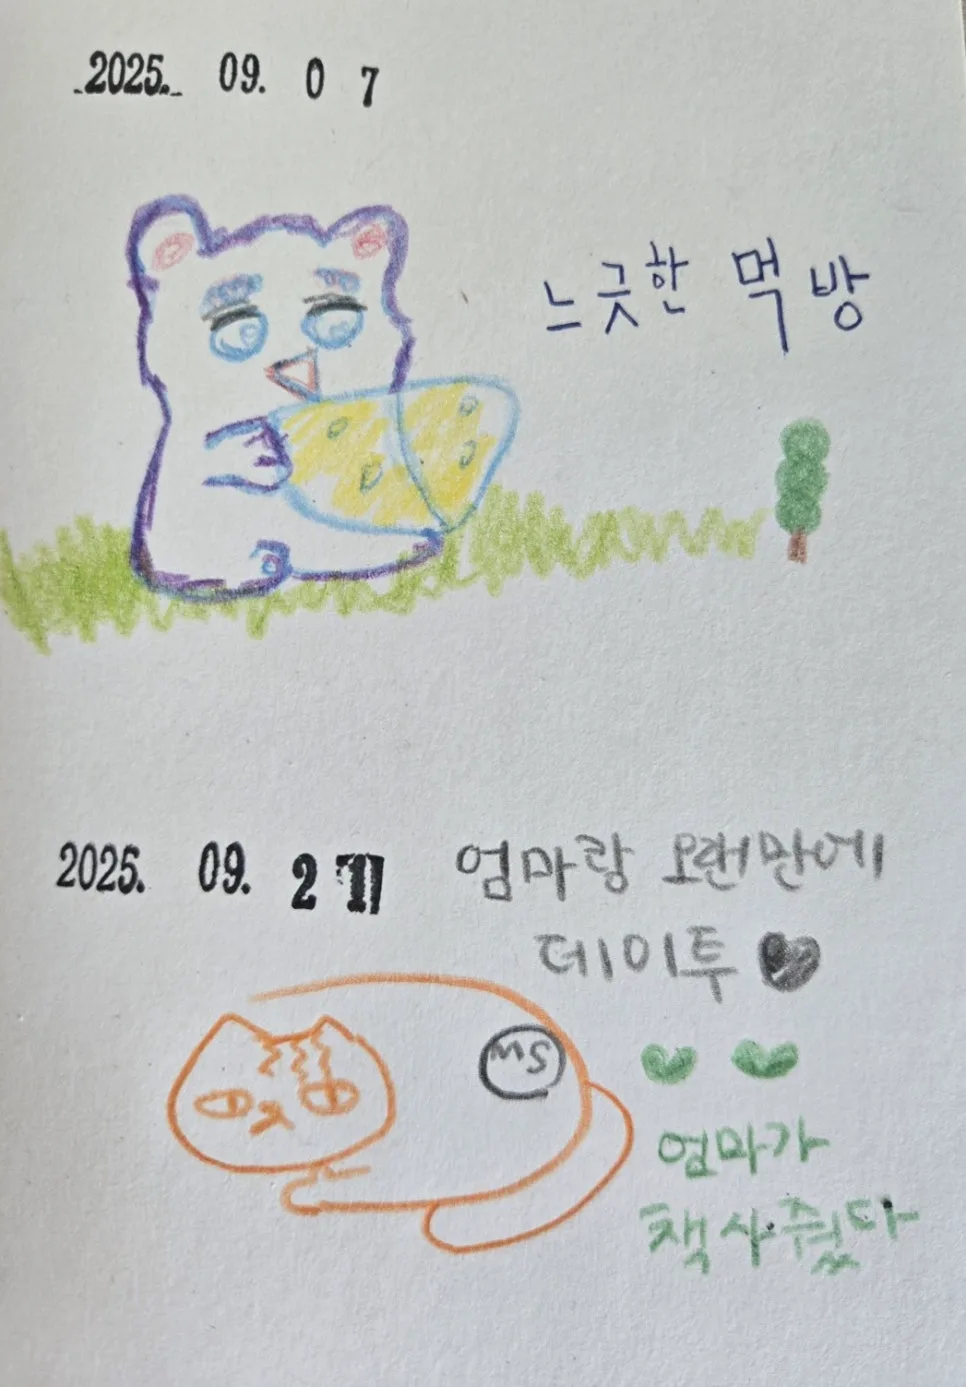 2025. 09. 0 7
느긋한 먹방
2025. 09. 2
엄마랑 오랜만에
데이투
MS
엄마가
책 사줬다